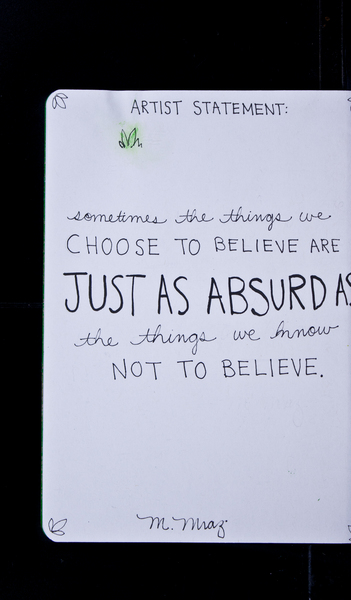 ARTIST STATEMENT:
sometimes the things we
CHOOSE TO BELIEVE ARE
JUST AS ABSURD AS
the things we know
NOT TO BELIEVE.
M. Mraz